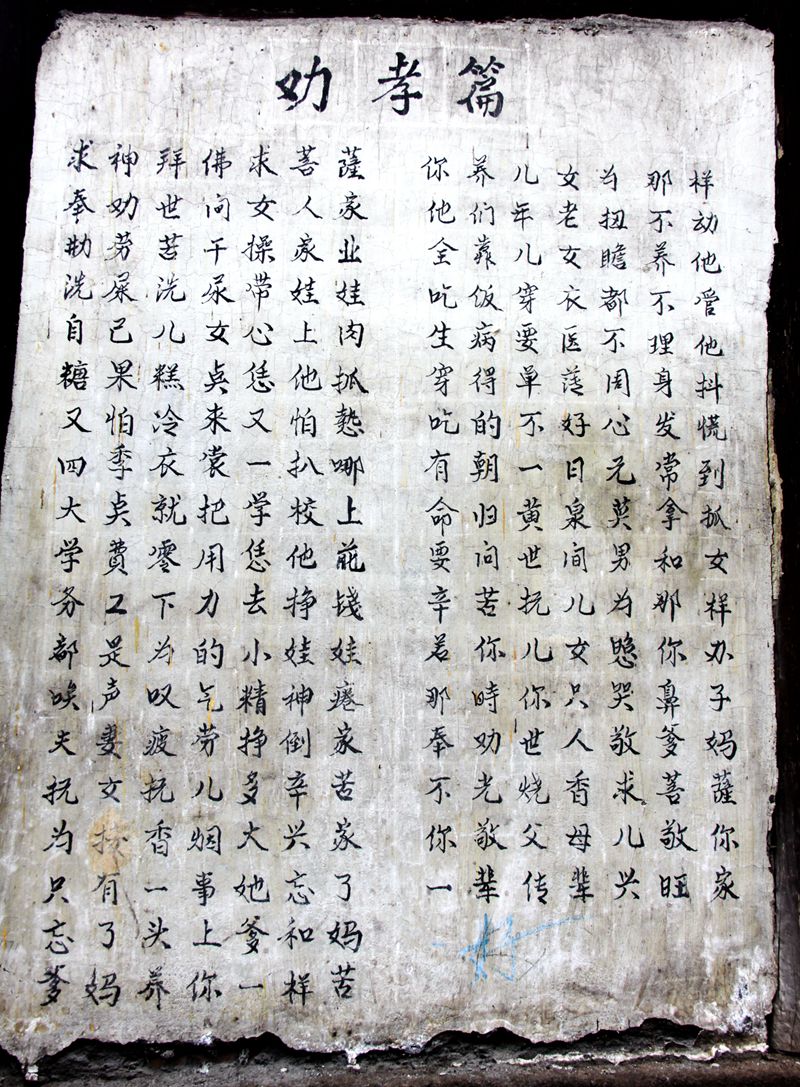 劝孝篇
求神拜佛求菩薩
奉劝世间女人家
勤劳苦干操家业
洗屎洗尿带娃娃
自己儿女心上肉
糖果糕点恁他抓
又怕冷来又怕热
四季衣裳一扒哪
大点就把学校上
学費零用恁他花
务工下力去挣钱
都是为的小娃娃
唉声叹气精神瘪
夫妻疲劳挣倒家
抚女抚儿多辛苦
为抚香烟大兴家
只有一事她忘了
忘了头上爹和妈
爹妈养你一样苦
你养儿女为那样
他们年老扭不动
全靠儿女瞻养他
吃饭穿衣都不管
生病要医不理他
穿得单薄周身抖
吃的不好心发慌
有朝一日无常到
命归黄泉莫拿抓
要问世间男和女
辛苦抚儿为那样
若你儿女照你办
那時你只哭鼻子
奉劝世人敬爹妈
不光烧香求菩薩
你敬父母儿敬你
一辈传辈兴旺家